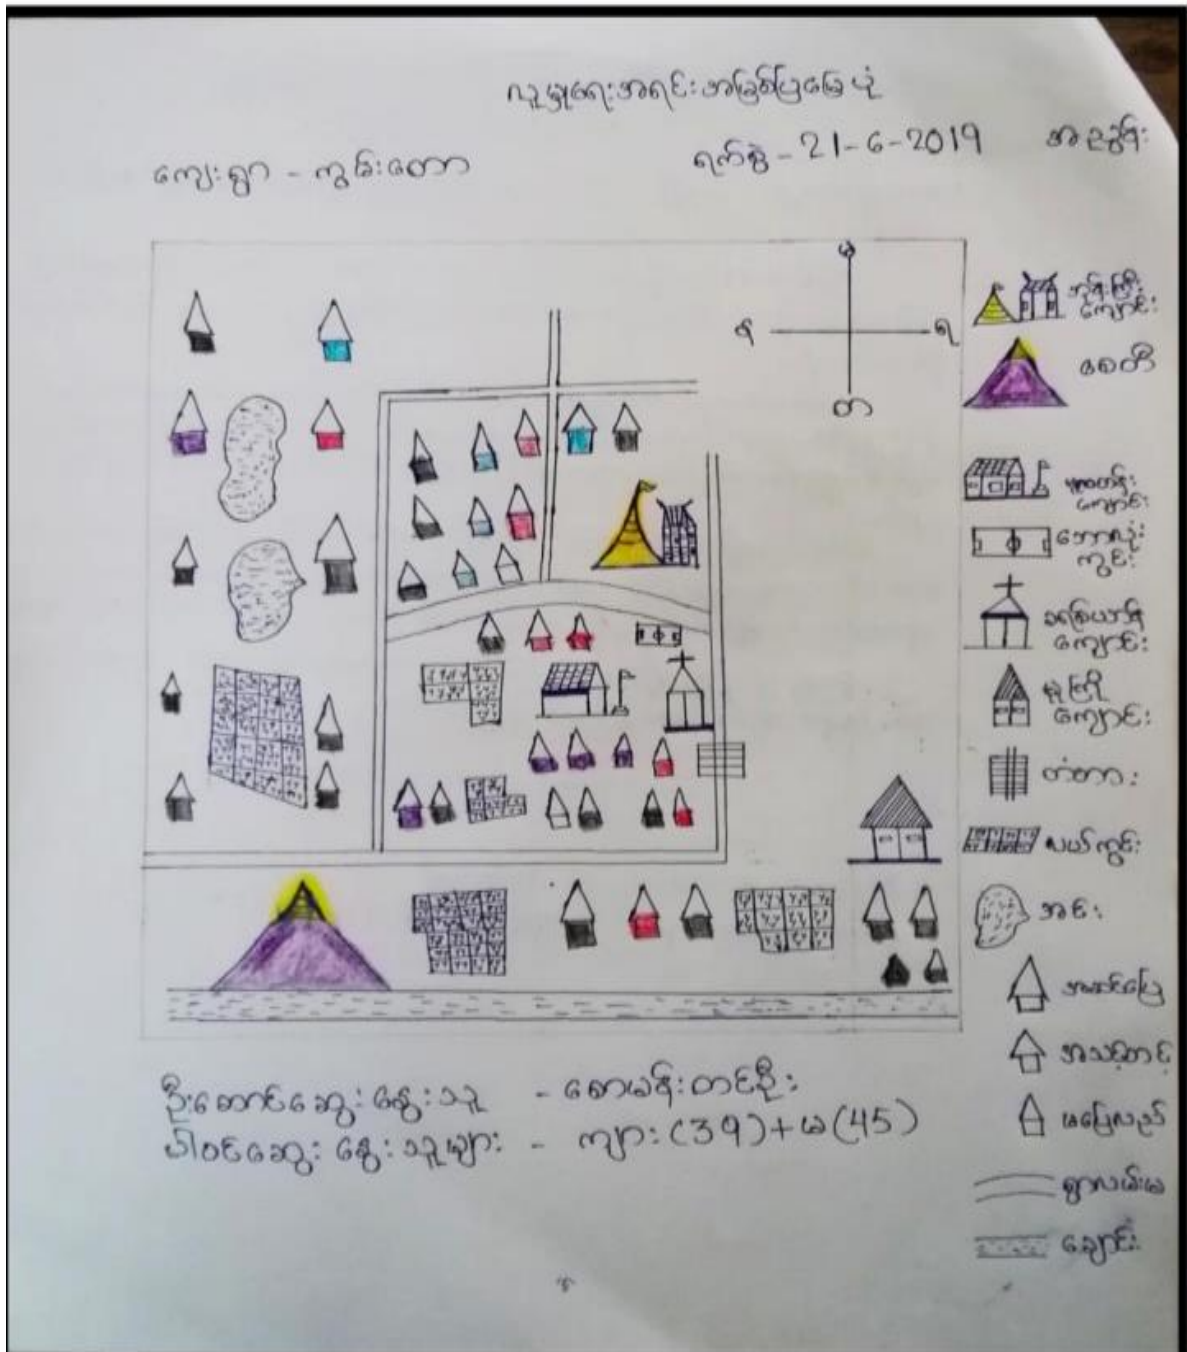 လူမှုရေးအရင်းအမြစ်ပြမြေပုံ
ကျေးရွာ - ကွမ်းတော
ရက်စွဲ - 21-6-2019
အညွှန်း
မ
န
ရ
တ
ဘုန်းကြီး
ကျောင်း
စေတီ
မူလတန်း
ကျောင်း
ဘောလုံး
ကွင်း
ခရစ်ယာန်
ကျောင်း
မူကြို
ကျောင်း
တံတား
လယ်ကွင်း
အင်း
အဆင်ပြေ
အသင့်တင့်
မပြေလည်
ရွာလမ်းမ
ချောင်း
ဦးဆောင်ဆွေးနွေးသူ - စောမန်းတင်ဦး
ပါဝင်ဆွေးနွေးသူများ - ကျား(39)+မ(45)